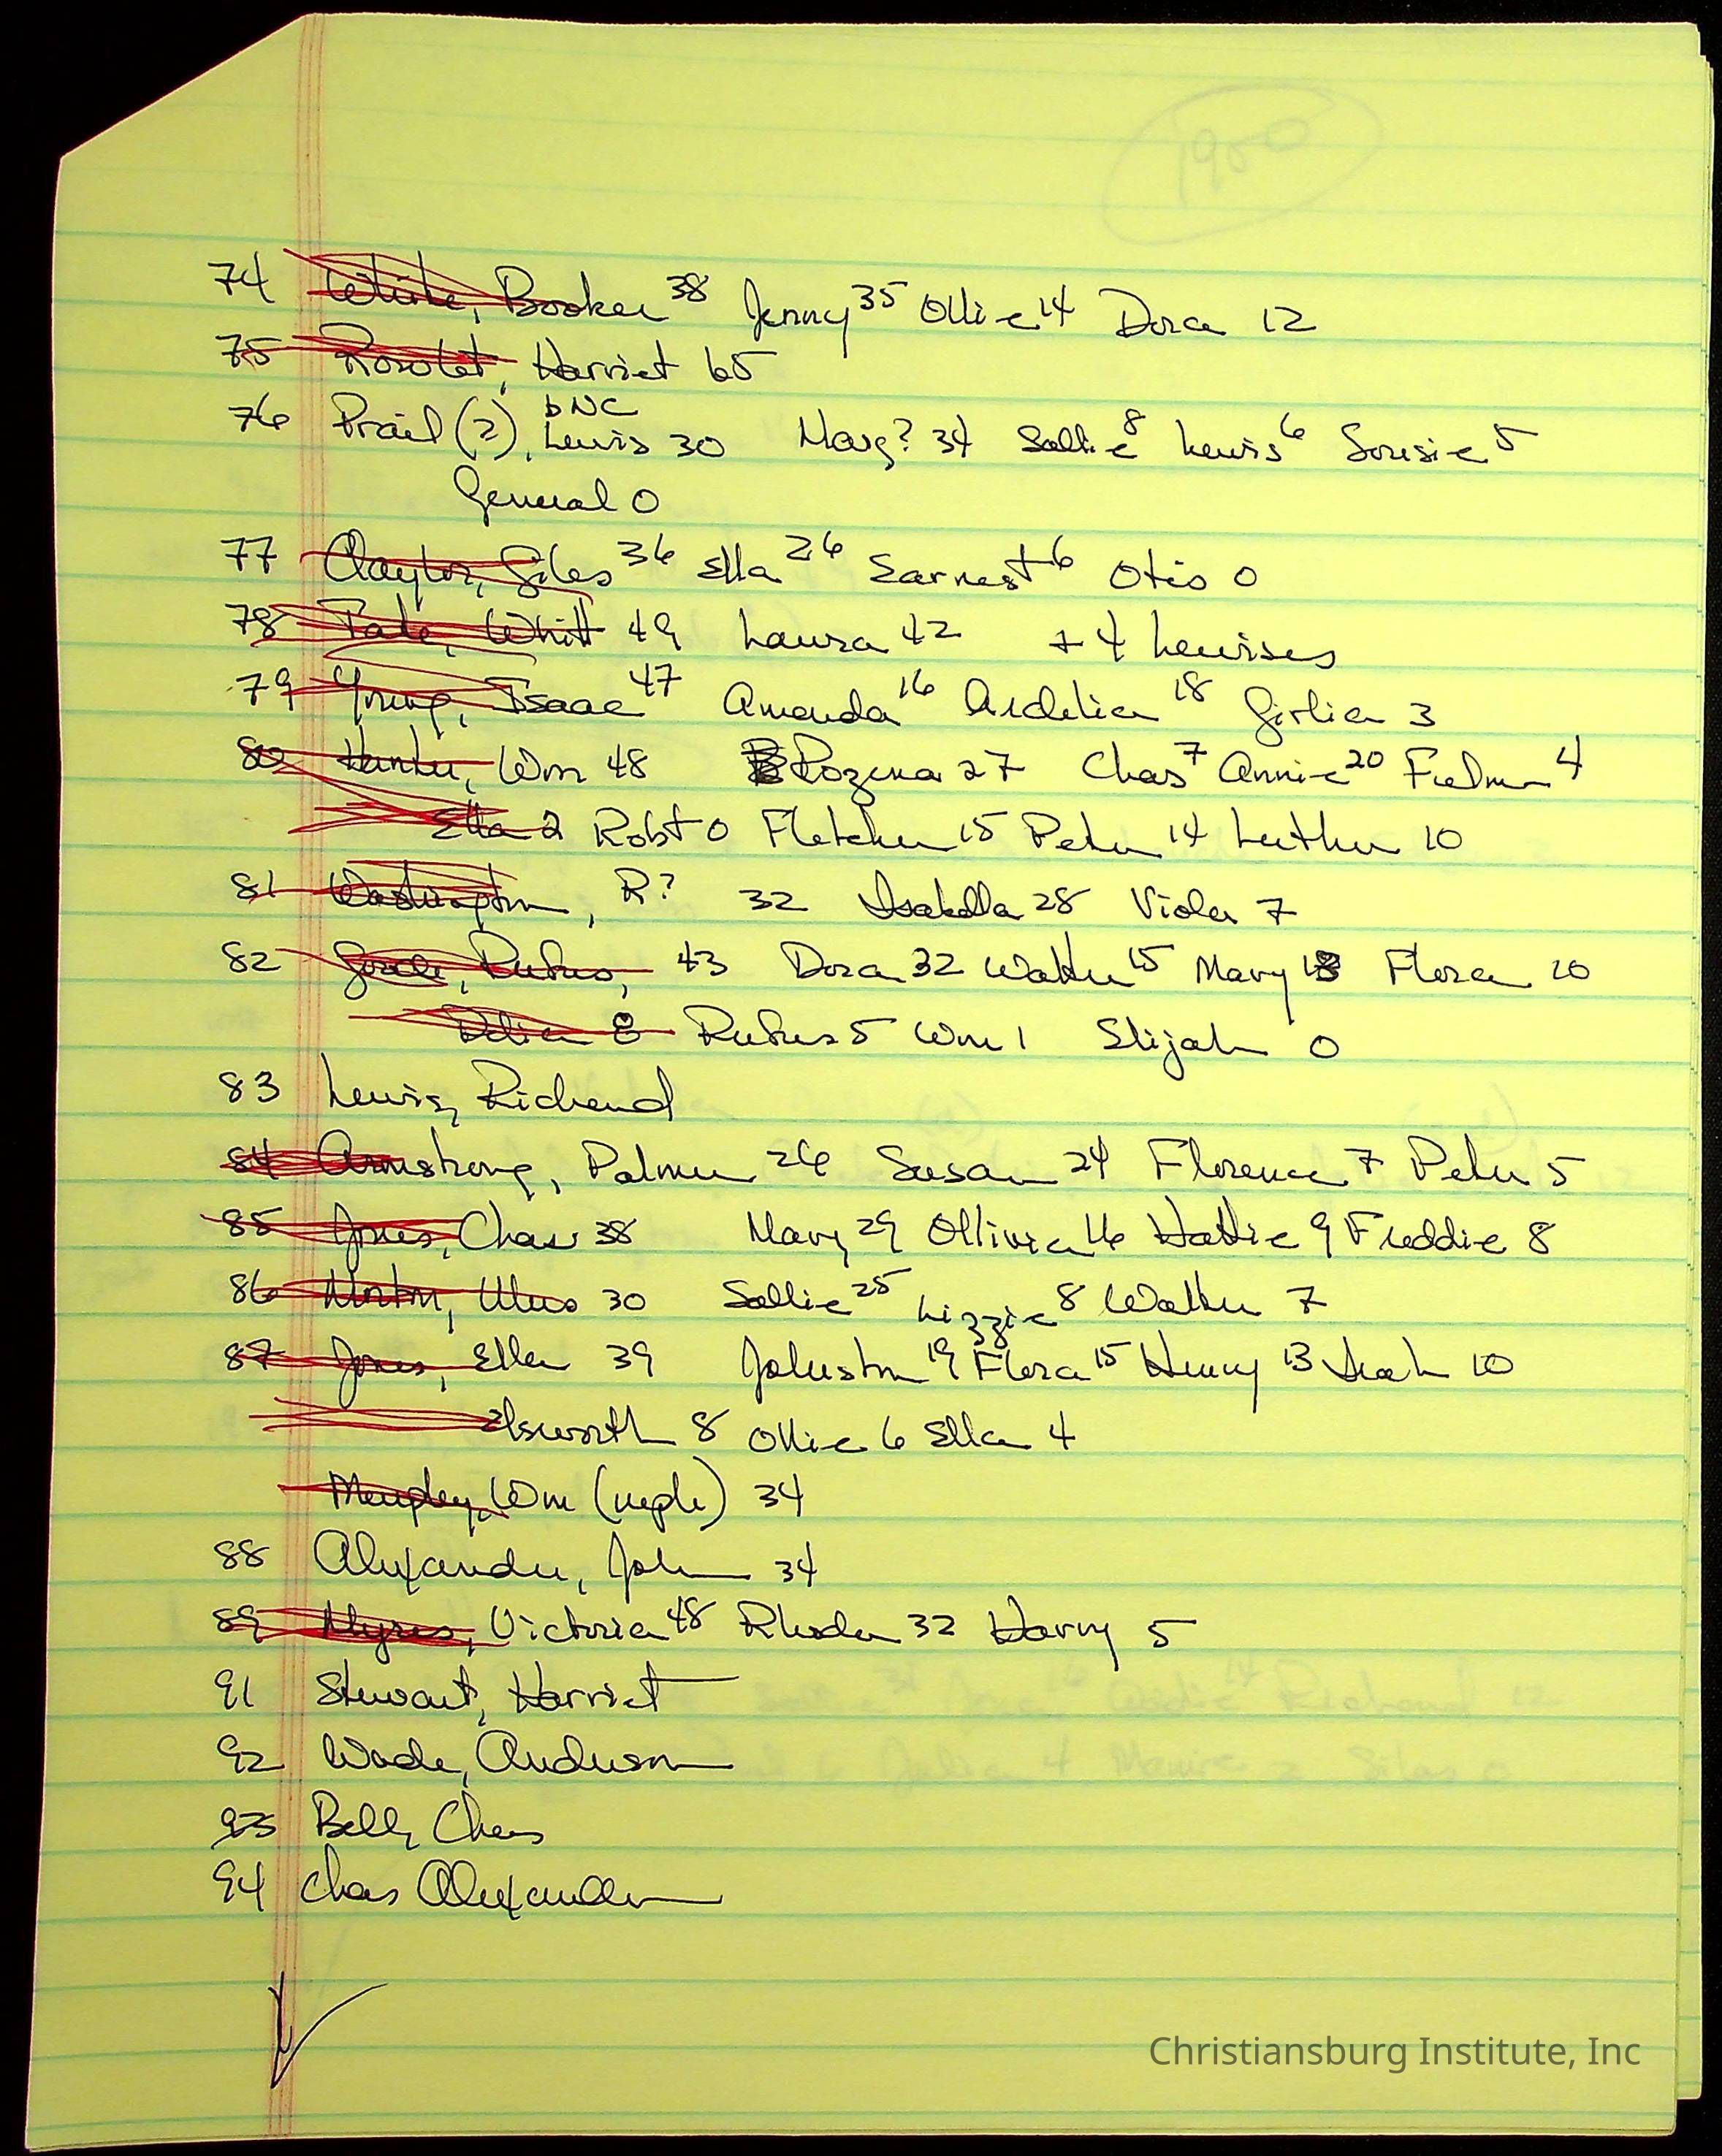 1900
74 White, Booker 38 Jenny 35 Ollie 14 Dora 12
75 Harriet 65
76 Prail (?), bNC Lewis 30 Marg? 34 Sallie 8 Lewis 6 Sousie 5
General 0
77 Claytor, Giles 36 Ella 26 Earnest 6 Otis 0
78 Tate, Whitt 49 Laura 42 + 4 Lewises
79 Young, Isaac 47 Amanda 16 Ardelia 18 Girlia 3
80 Hunter, Wm 48 Rozena 27 Chas 7 Annie 20 4
Etta 2 Robt 0 Fletcher 15 Peter 14 Luther 10
81 Washington, R? 32 Isabella 28 Viola 7
82 Rufus, 43 Dora 32 Walter 15 Mary 13 Flora 10
Delia 8 Rufus 5 Wm 1 Elijah 0
83 Lewis, Richard
84 Armstrong, Palmer 26 Susan 24 Florence 7 Peter 5
85 Jones, Chas 38 Mary 29 Ollivia 16 Hattie 9 Freddie 8
86 30 Sallie 25 Lizzie 8 Walter 7
87 Jones, Ellen 39 Johnston 19 Flora 15 Henry 13 10
Elsworth 8 Ollie 6 Ella 4
Wm (neph) 34
88 Alexander, John 34
89 Myres, Victoria 48 Rhoda 32 Harvy 5
91 Stewart, Harriet
92 Wade, Anderson
93 Bell, Chas
94 Chas Alexander
Christiansburg Institute, Inc